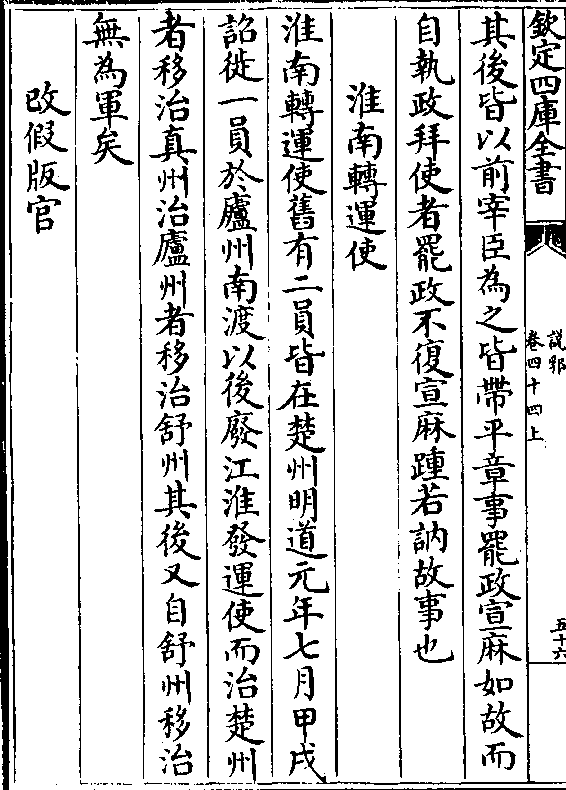 欽定四庫全書
說郛
卷四十四上
五十六
其後皆以前宰臣為之皆帶平章事罷政宣麻如故而
自執政拜使者罷政不復宣麻踵若訥故事也
淮南轉運使
淮南轉運使舊有二員皆在楚州明道元年七月甲戌
詔徙一員於廬州南渡以後廢江淮發運使而治楚州
者移治真州治廬州者移治舒州其後又自舒州移治
無為軍矣
改假版官